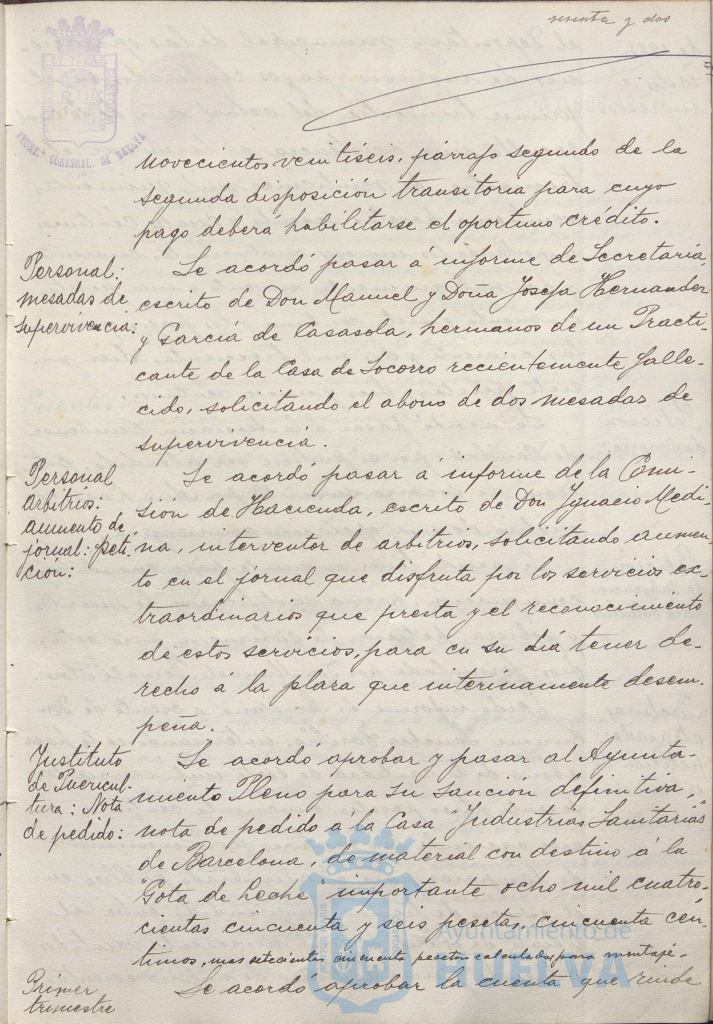 sesenta y dos
AYUNT.º CONSNAL. DE HUELVA
novecientos veintiseis, párrafo segundo de la
segunda disposición transitoria para cuyo
pago deberá habilitarse el oportuno crédito.
Personal:
mesadas de
supervivencia:
Se acordó pasar á informe de Secretaria,
escrito de Don Manuel y Doña Josefa Hernandez
y Garciá de Casasola, hermanos de un Practi-
cante de la Casa de Socorro recientemente falle-
cido, solicitando el abono de dos mesadas de
supervivencia.
Personal
arbitrios:
aumento de
jornal: peti-
ción:
Se acordó pasar á informe de la Comi-
sión de Hacienda, escrito de Don Ygnacio Medi-
na, interventor de arbitrios, solicitando aumen-
to en el jornal que disfruta por los servicios ex-
traordinarios que presta y el reconocimiento
de estos servicios, para en su día tener de-
recho á la plaza que interinamente desem-
peña.
Ynstituto
de Puericul-
tura: Nota
de pedido:
Se acordó aprobar y pasar al Ayunta-
miento Pleno para su sanción definitiva,
nota de pedido á la Casa "Yndustrias Sanitarias"
de Barcelona, de material con destino á la
"Gota de Leche" importante ocho mil cuatro-
cientas cincuenta y seis pesetas, cincuenta cén-
timos, mas setecientas cincuenta pesetas calculadas para montaje.
Primer
trimestre
Se acordó aprobar la cuenta que rinde
Ayuntamiento de
HUELVA